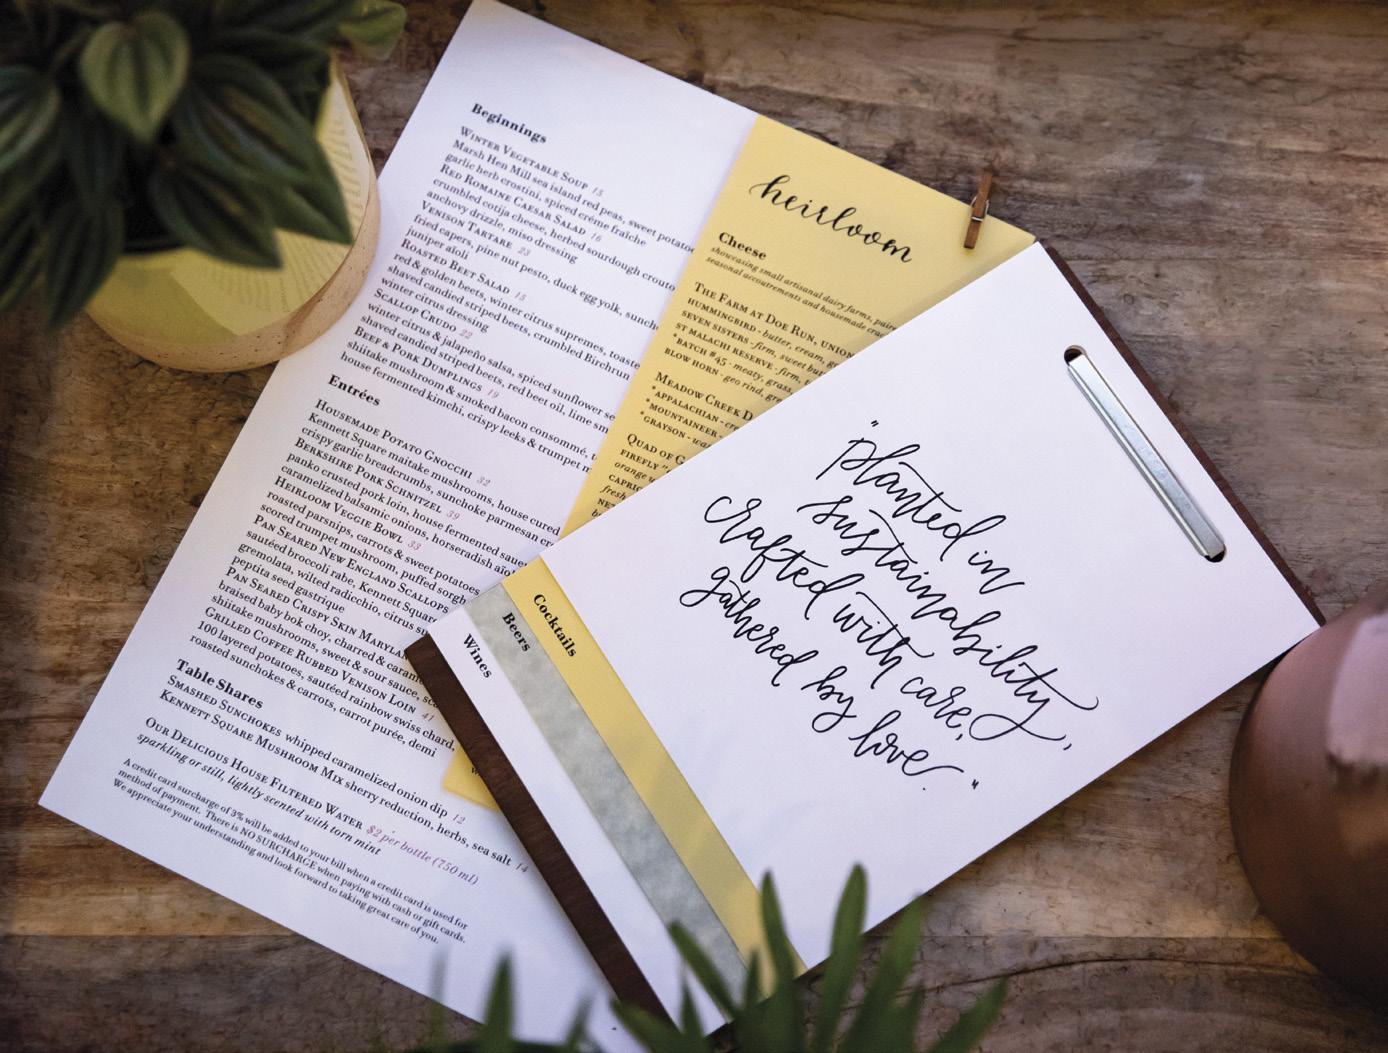 Beginnings
WINTER VEGETABLE SOUP 13
Marsh Hen Mill sea island red peas, sweet potato
garlic herb crostini, spiced créme fraîche
RED ROMAINE CAESAR SALAD 16
crumbled cotija cheese, herbed sourdough
anchovy drizzle, miso dressing
VENISON TARTARE 23
fried capers, pine nut pesto, duck egg yolk,
juniper aïoli
ROASTED BEET SALAD 15
red & golden beets, winter citrus supremes,
shaved candied striped beets, crumbled Birchrun
winter citrus dressing
SCALLOP CRUDO 22
winter citrus & jalapeño salsa, spiced sunflower
shaved candied striped beets, red beet oil, lime
BEEF & PORK DUMPLINGS 19
shiitake mushroom & smoked bacon consommé,
house fermented kimchi, crispy leeks & trumpet
Entrées
HOUSEMADE POTATO GNOCCHI 32
Kennett Square maitake mushrooms, house cured
crispy garlic breadcrumbs, sunchoke parmesan
BERKSHIRE PORK SCHNITZEL 39
panko crusted pork loin, house fermented
caramelized balsamic onions, horseradish
HEIRLOOM VEGGIE BOWL 33
roasted parsnips, carrots & sweet potatoes
scored trumpet mushroom, puffed
PAN SEARED NEW ENGLAND SCALLOPS
sautéed broccoli rabe, Kennett Square
gremolata, wilted radicchio, citrus
peptita seed gastrique
PAN SEARED CRISPY SKIN
braised baby bok choy, charred &
shiitake mushrooms, sweet & sour sauce,
GRILLED COFFEE RUBBED VENISON LOIN 41
100 layered potatoes, sautéed rainbow swiss chard,
roasted sunchokes & carrots, carrot purée, demi
Table Shares
SMASHED SUNCHOKES whipped caramelized onion dip 12
KENNETT SQUARE MUSHROOM MIX sherry reduction, herbs, sea salt 14
OUR DELICIOUS HOUSE FILTERED WATER $2 per bottle (750 ml)
sparkling or still, lightly scented with torn mint
A credit card surcharge of 3% will be added to your bill when a credit card is used for
method of payment. There is NO SURCHARGE when paying with cash or gift cards.
We appreciate your understanding and look forward to taking great care of you.
heirloom
Cheese
showcasing small artisanal dairy farms,
seasonal accoutrements and housemade
THE FARM AT DOE RUN,
HUMMINGBIRD - butter, cream,
SEVEN SISTERS - firm, sweet
ST MALACHI RESERVE - firm,
*BATCH #45 - meaty, grass,
BLOW HORN - geo rind,
MEADOW CREEK
*APPALACHIAN -
*MOUNTAINEER -
*GRAYSON -
QUAD OF
FIREFLY
orange
fresh
"planted in
sustainability,
crafted with care,
gathered by love."
Cocktails
Beers
Wines